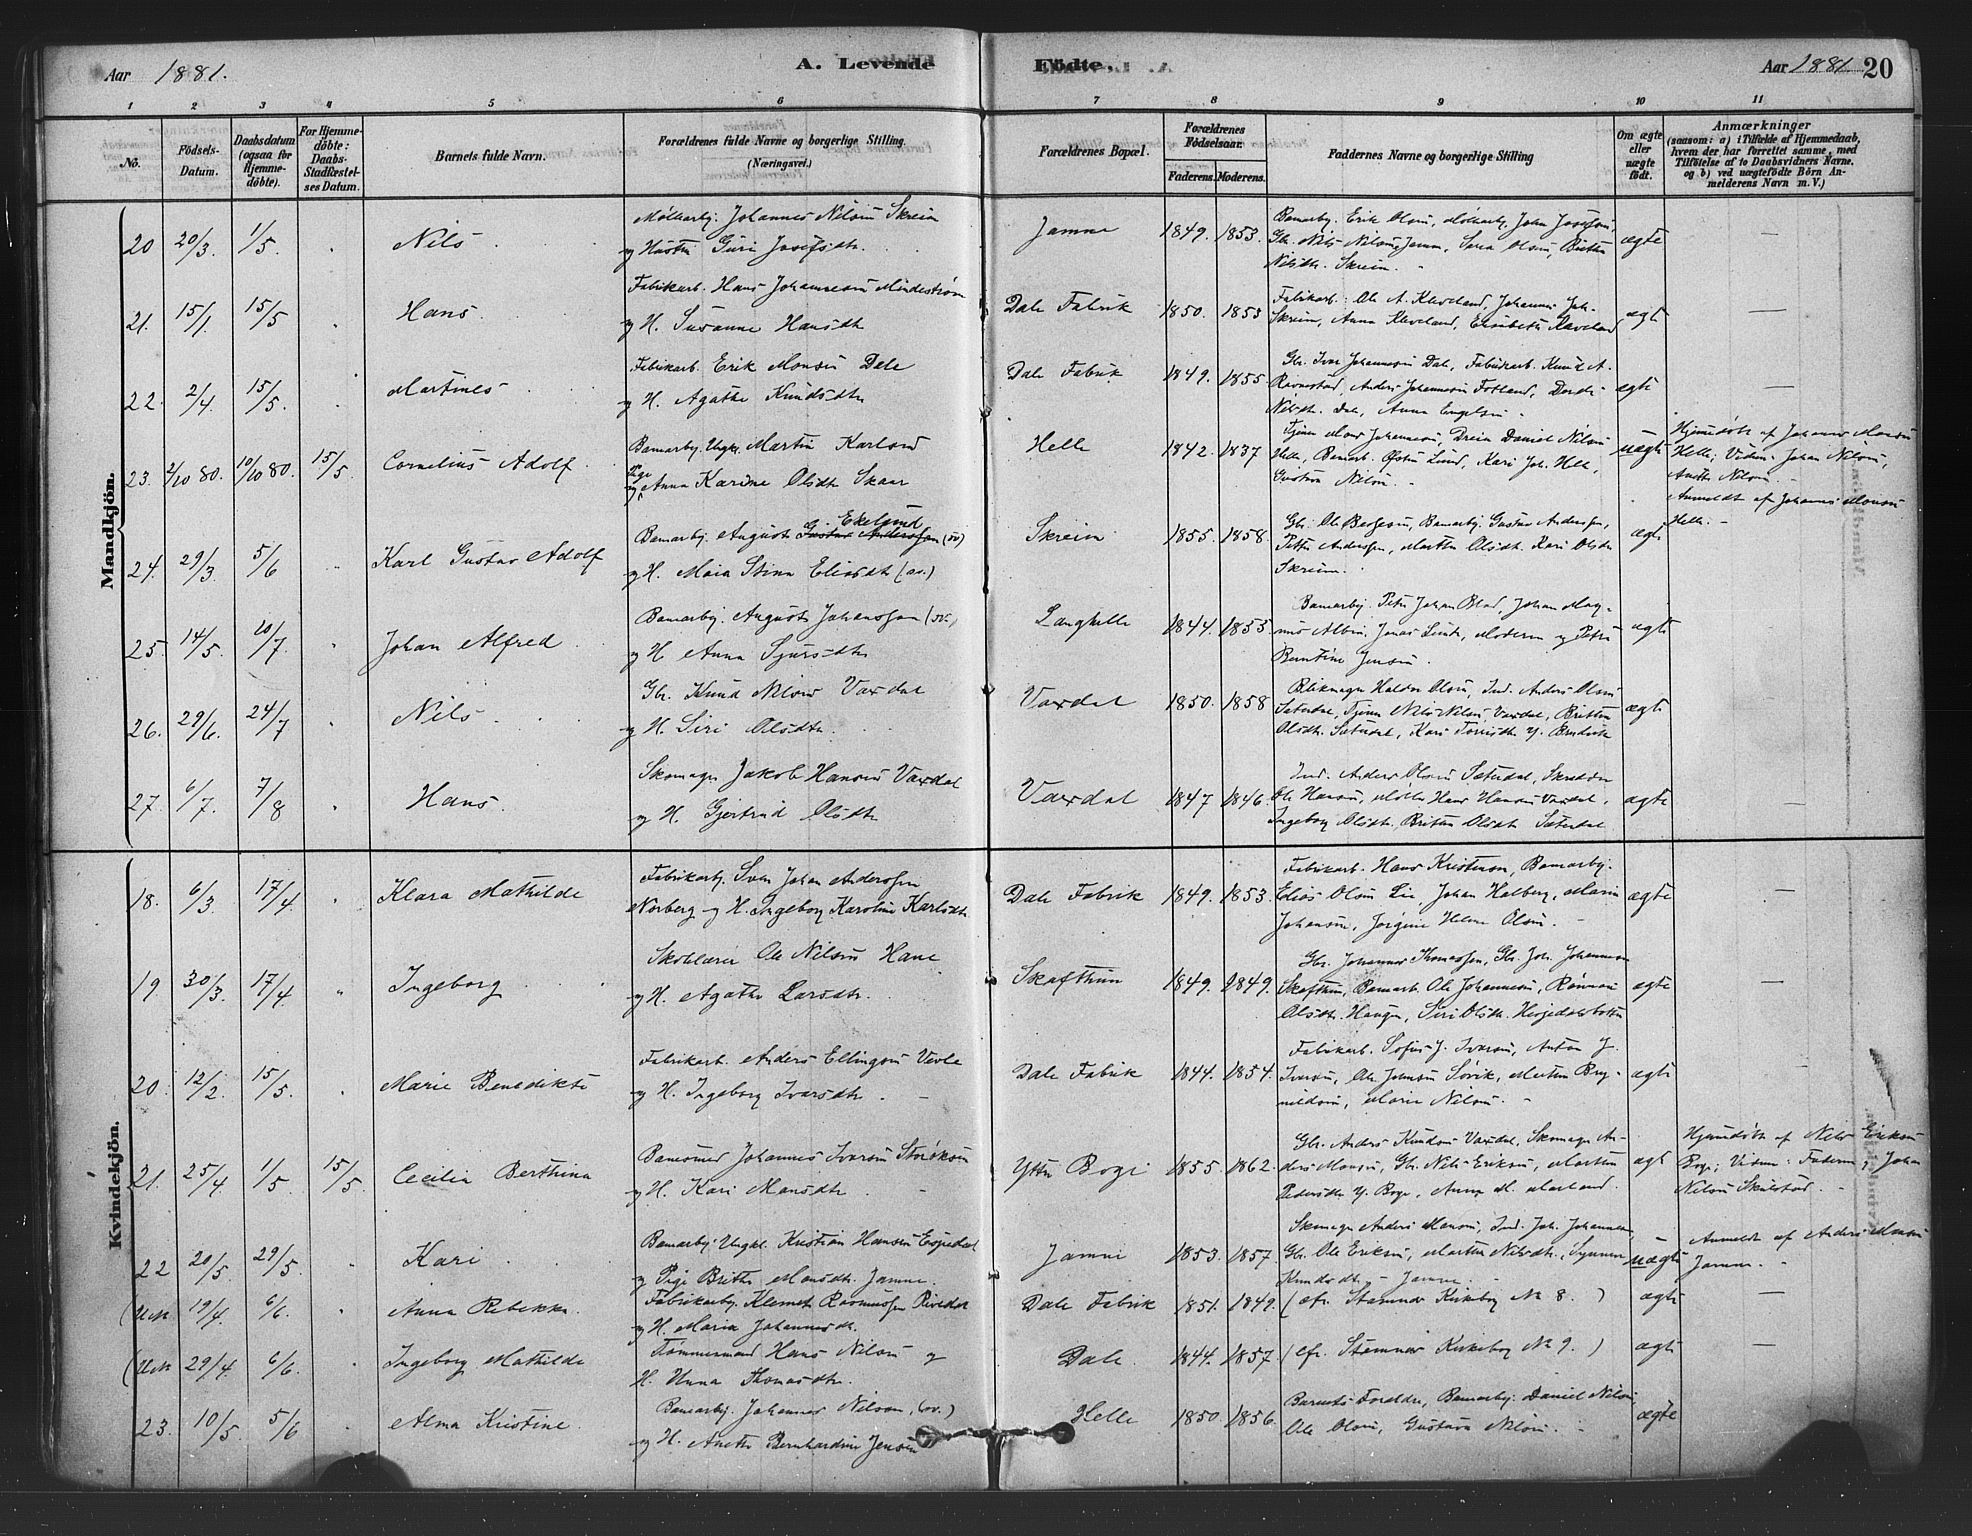 Aar 1881.
A. Levende
Fødte.
Aar 1881. 20
1 2 3 4 5 6 7 8 9 10 11
No.
Födsels-
Datum.
Daabsdatum
(ogsaa for
Hjemme-
döbte).
For Hjemme-
döbte:
Daabs-
Stadfæstel-
ses Datum.
Barnets fulde Navn.
Forældrenes fulde Navne og borgerlige Stilling.
(Næringsvei.)
Forældrenes Bopæl.
Forældrenes
Födselsaar.
Faderens. Moderens.
Faddernes Navne og borgerlige Stilling
Om ægte
eller
uægte
født.
Anmærkninger
(saasom: a) i Tilfælde af Hjemmedaab,
hvem der har forrettet samme, med
Tilföielse af to Daabsvidners Navne,
og b) ved uægtefödte Börn An-
melderens Navn m. V.)
Mandkjön.
20 20/3 1/5 " Nils
Johannes Nilsen Skreien
og Hustru Guri Josefsdtr.
Jamne 1849. 1853.
Bamarby. Erik Olsen, John Josefsen,
Gbr. Nils Nilsen Jamn, Sara Olsen, Britta
Nilsdtr. Skrein.
ægte —
21. 15/1. 15/5 " Hans.
Fabrikarb. Hans Johannesen Mindestrøm
og H. Susanne Hansdtr
Dale Fabrik 1850. 1853
Fabrikarb. Ole A. Kleveland, Johannes Joh.
Skrein, Anna Kleveland, Elisabeth Kleveland
ægte —
22. 2/4. 15/5. " Martines
Fabrikarb. Erik Monsen Dale
og H. Agathe Knudsdtr
Dale Fabrik 1849. 1855.
Gbr. Ivar Johannesen Dale, Fabrikarb. Knud A.
Anders Johannesen Fotland,
Nilsdtr. Dale, Anna Engelsen.
ægte —
23. 2/10 80. 10/10 80. 15/5 Cornelius Adolf
Bamarby. Ungk. Martin Karlsen
og Pige Anna Karine Olsdtr Skaar
Helle 1842. 1837
Tjener Mons Johannesen, Dreier Daniel Nilsen
Helle, Bamarb. Lund, Kari Joh. Helle,
Gustava Nilsen.
uægte
Hjemmedøbt af Johannes Monsen
Helle; Vidner: Johan Nilsen,
Anethe Nilsen.
Anmeldt af Johannes Monsen
Helle.
24. 29/3. 5/6 " Karl Gustav Adolf
Bamarby. August Gustav Anderssen Ekelund (sv)
og H. Maia Stina Eliasdtr (sv.)
Skrein 1855. 1858.
Gbr. Ole Bergesen, Bamarby. Gustav Anderssen,
Petter Anderssen, Martha Olsdtr. Kari Olsdtr
Skrein.
ægte
25 14/5. 10/7. " Johan Alfred
Bamarby. August Johanssen (sv.)
og H Anna Sjursdtr
Langhelle 1844. 1855
Bamarby. Petter Johan Blad, Johan Mag-
nus Albin, Jonas Moderen og Petra
Berntine Jensen.
ægte
26. 29/6. 24/7 " Nils
Gbr. Knud Nilsen Vaxdal
og H. Siri Olsdtr.
Vaxdal 1850. 1858
Haldor Olsen, Ind. Anders Olsen
Sætredal, Tjener Nils Nilsen Vaxdal, Britha
Olsdtr. Sætredal, Kari
ægte
27. 6/7. 7/8 " Hans.
Skomager Jakob Hansen Vaxdal
og H. Gjertrud Olsdtr
Vaxdal 1847 1846
Ind. Anders Olsen Sætredal, Skrædder
Ole Hansen, Møller Hans Hansen Vaxdal,
Ingeborg Olsdtr. Brithe Olsdtr Sætredal
ægte —
Kvindekjön.
18. 6/3 17/4. " Klara Mathilde
Fabrikarby. Sven Johan Anderssen
Norberg og H. Ingeborg Karoline Karlsdtr.
Dale Fabrik 1849. 1853.
Fabrikarb. Hans Kristensen, Bamarby.
Elias Olsen Lie, Johan Halberg, Marie
Johansen, Jørgine Helene Olsen.
ægte —
19. 30/3. 17/4 " Ingeborg
Skolelærer Ole Nilsen Hane
og H. Agathe Larsdtr.
Skafthun 1849. 1849.
Gbr. Johannes Thomassen, Gbr. Joh. Johannesen
Skafthun, Bamarb. Ole Johannesen,
Olsdtr. Haugen, Siri Olsdtr.
ægte —
20. 12/2. 15/5. " Marie Benedikte
Fabrikarb. Anders Ellingsen Vevle
og H. Ingeborg Ivarsdtr.
Dale Fabrik 1844. 1854.
Fabrikarb. Sofus J. Ivarsen, Anton J.
Ivarsen, Ole Johnsen Sørvik, Martha Bry-
nildsen, Marie Nilsen.
ægte —
21. 25/4 1/5 15/5 Cecilia Berthina
Johannes Ivarsen
og H. Kari Monsdtr.
Yttre Boge 1855. 1862.
Gbr. Anders Knudsen Vaxdal, Skomager An-
ders Monsen, Gbr. Nils Eriksen, Martha
Pedersdtr. Y. Boge, Anna M.
ægte
Hjemmedøbt af Nils Eriksen
Boge; Vidner: Faderen og Johan
Nilsen
22 20/5 29/5. " Kari
Bamarby. Ungkl. Kristian Hansen
og Pige Brithe Monsdtr. Jamne.
Jamne 1853. 1857.
Skomager Anders Monsen, Ind. Joh. Johannesen,
Gbr. Ole Eriksen, Martha Nilsdtr., Synneva
Knudsdtr. — Jamne.
uægte
Anmeldt af Anders Monsen
Jamne.
19/4. 6/6. " Anna Rebekka
Fabrikarby. Klemet Rasmussen
og H. Maria Johannesdtr.
Dale Fabrik 1851. 1849.
(cfr. Stamnes Kirkebog No 8.)
ægte —
29/4. 6/6. " Ingeborg Mathilde
Tømmermand Hans Nilsen og
H. Unna Thomasdtr.
Dale. 1844. 1857.
(cfr. Stamnes Kirkebog No 9.)
ægte —
23. 10/5. 5/6 " Alma Kristine
Bamarby. Johannes Nilsen (sv.)
og H. Anethe Bernhardine Jensen
Helle 1850. 1856.
Barnets Forældre, Bamarby. Daniel Nilsen,
Ole Olsen, Gustava Nilsen.
ægte